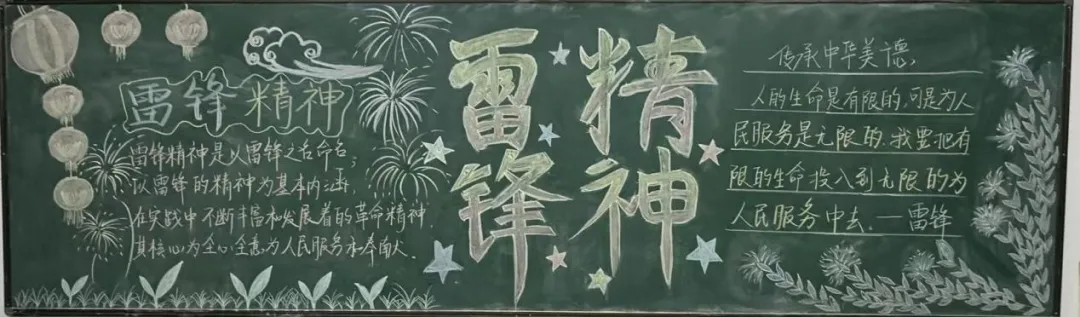 雷锋精神
雷锋精神是以雷锋之名命名,
以雷锋的精神为基本内涵,
在实战中不断丰富和发展着的革命精神
其核心为全心全意为人民服务和奉献
雷锋
精神
传承中华美德
人的生命是有限的,可是为人
民服务是无限的.我要把有
限的生命投入到无限的为
人民服务中去.一雷锋